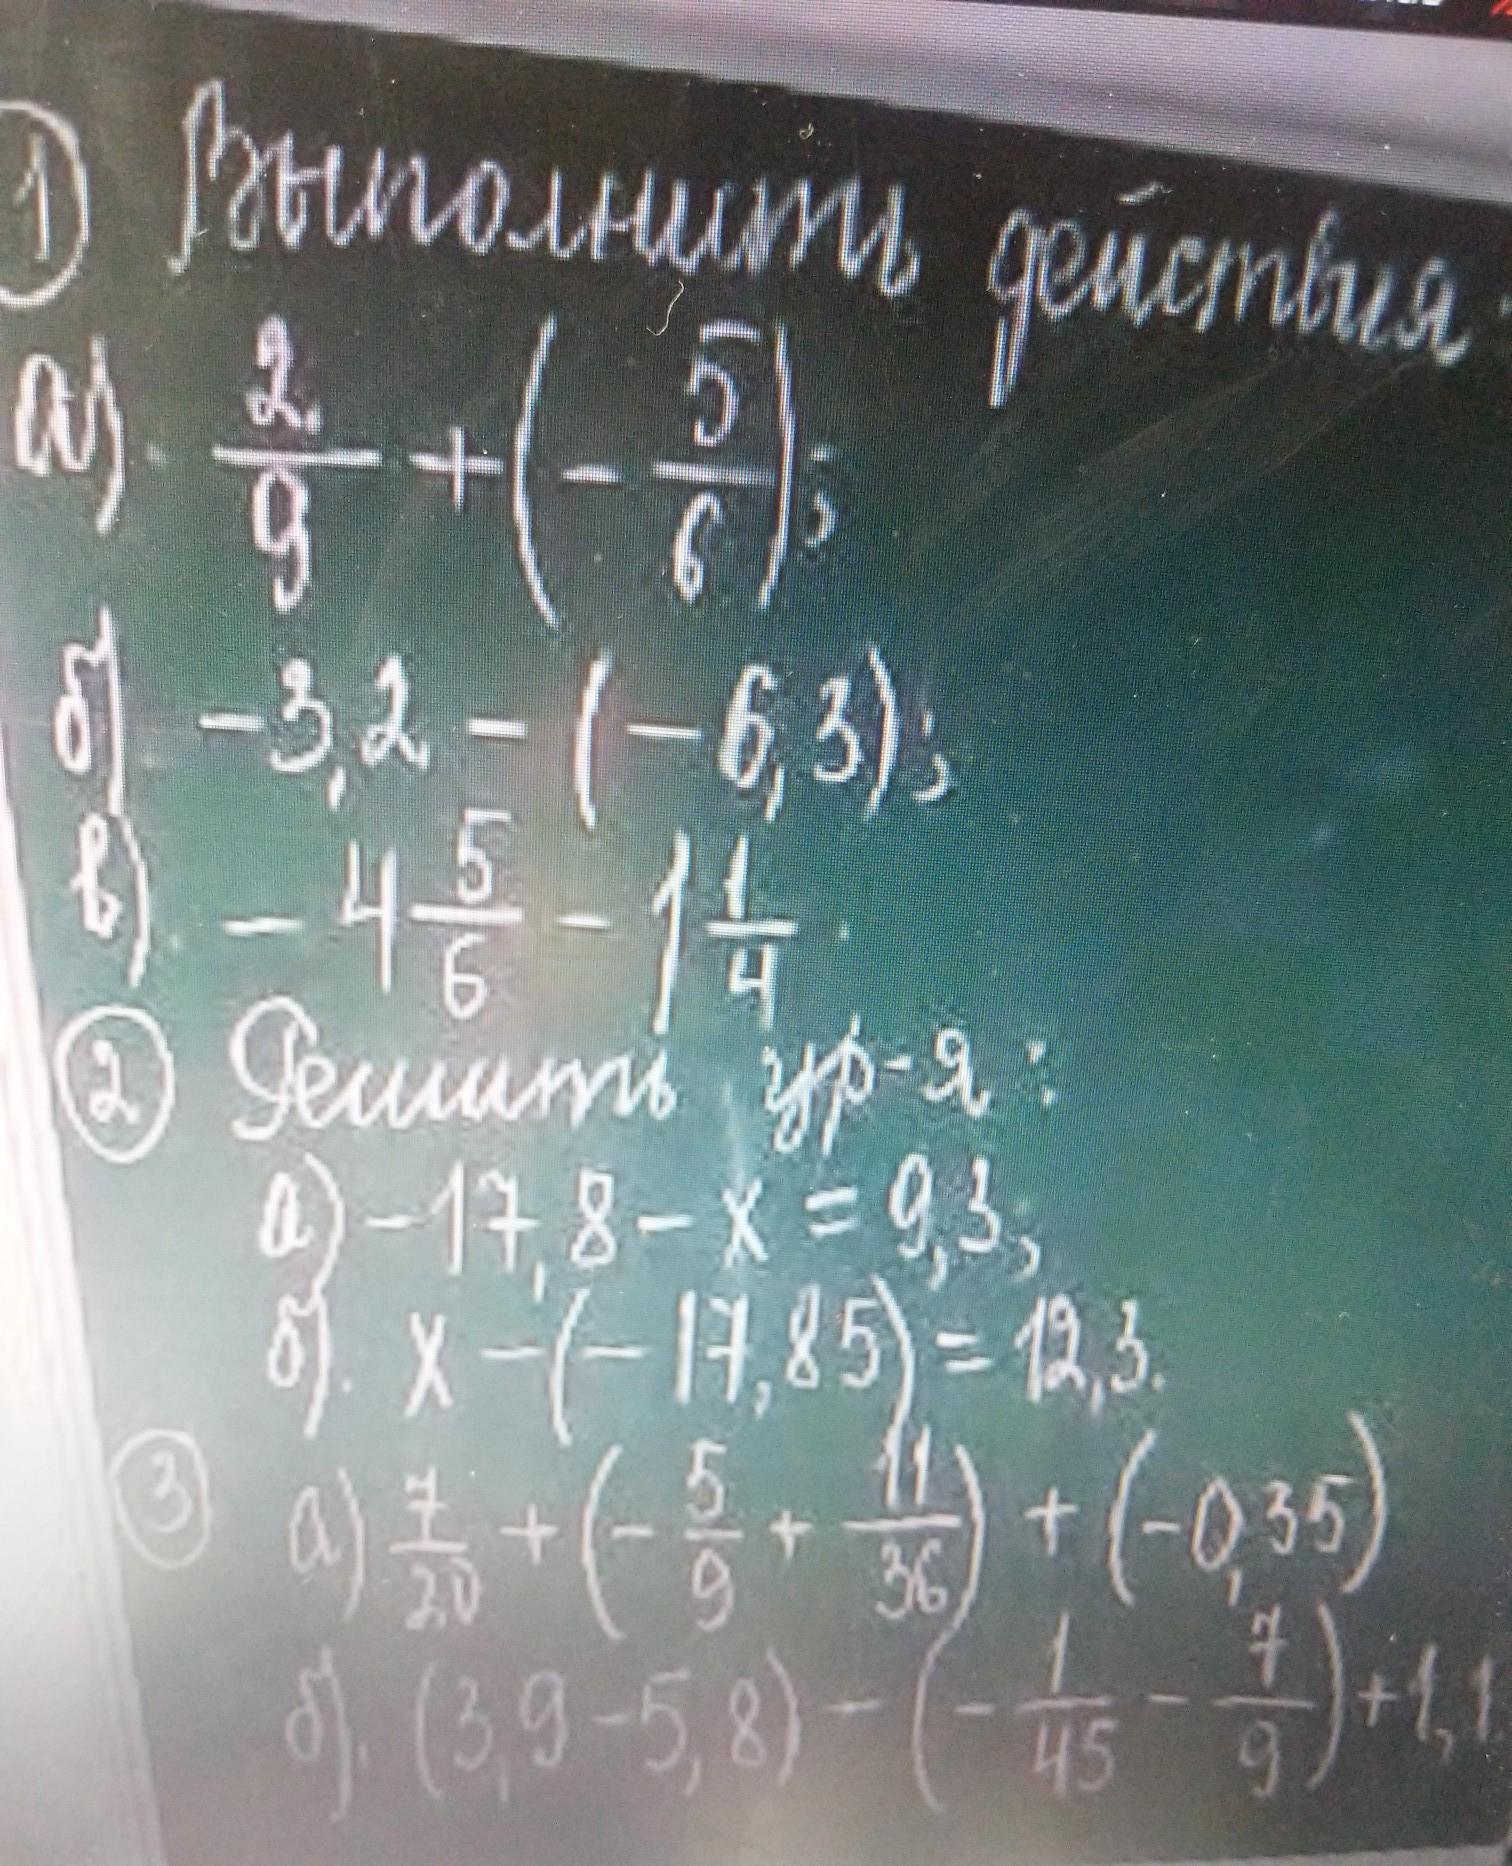 1) Выполнить действия
а) 2/9 + (-5/6);
б) -3,2 - (-6,3);
в) -4 5/6 - 1 1/4.
2) Решить ур-я:
а) -17,8 - x = 9,3;
б). x - (-17,85) = 12,3.
3) а) 7/20 + (-5/9 + 11/36) + (-0,35)
б). (3,9 - 5,8) - (-1/45 - 7/9) + 1,1